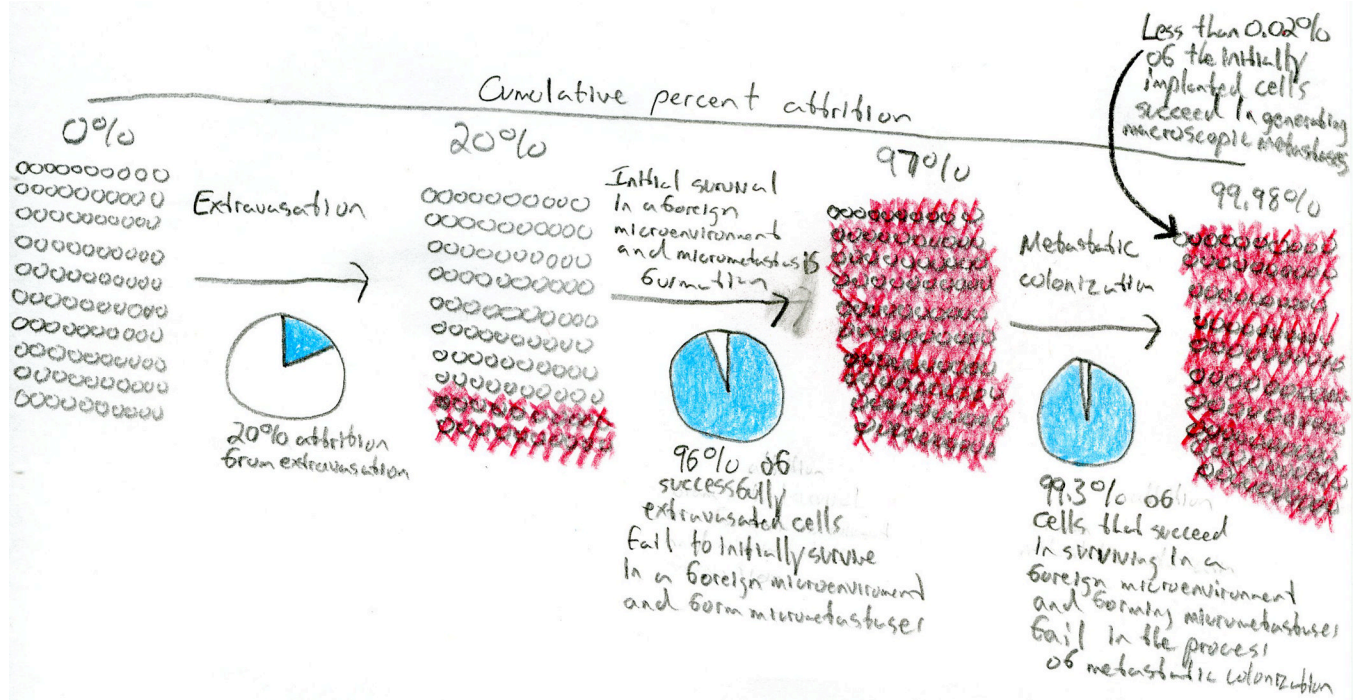 Cumulative percent attrition
Less than 0.02%
of the initially
implanted cells
succeed in generating
macroscopic metastases
0%
Extravasation
20% attrition
from extravasation
20%
Initial survival
in a foreign
microenvironment
and micrometastasis
formation
96% of
successfully
extravasated cells
fail to initially survive
in a foreign microenvironment
and form micrometastases
97%
Metastatic
colonization
99.3% of
cells that succeed
in surviving in a
foreign microenvironment
and forming micrometastases
fail in the process
of metastatic colonization
99.98%